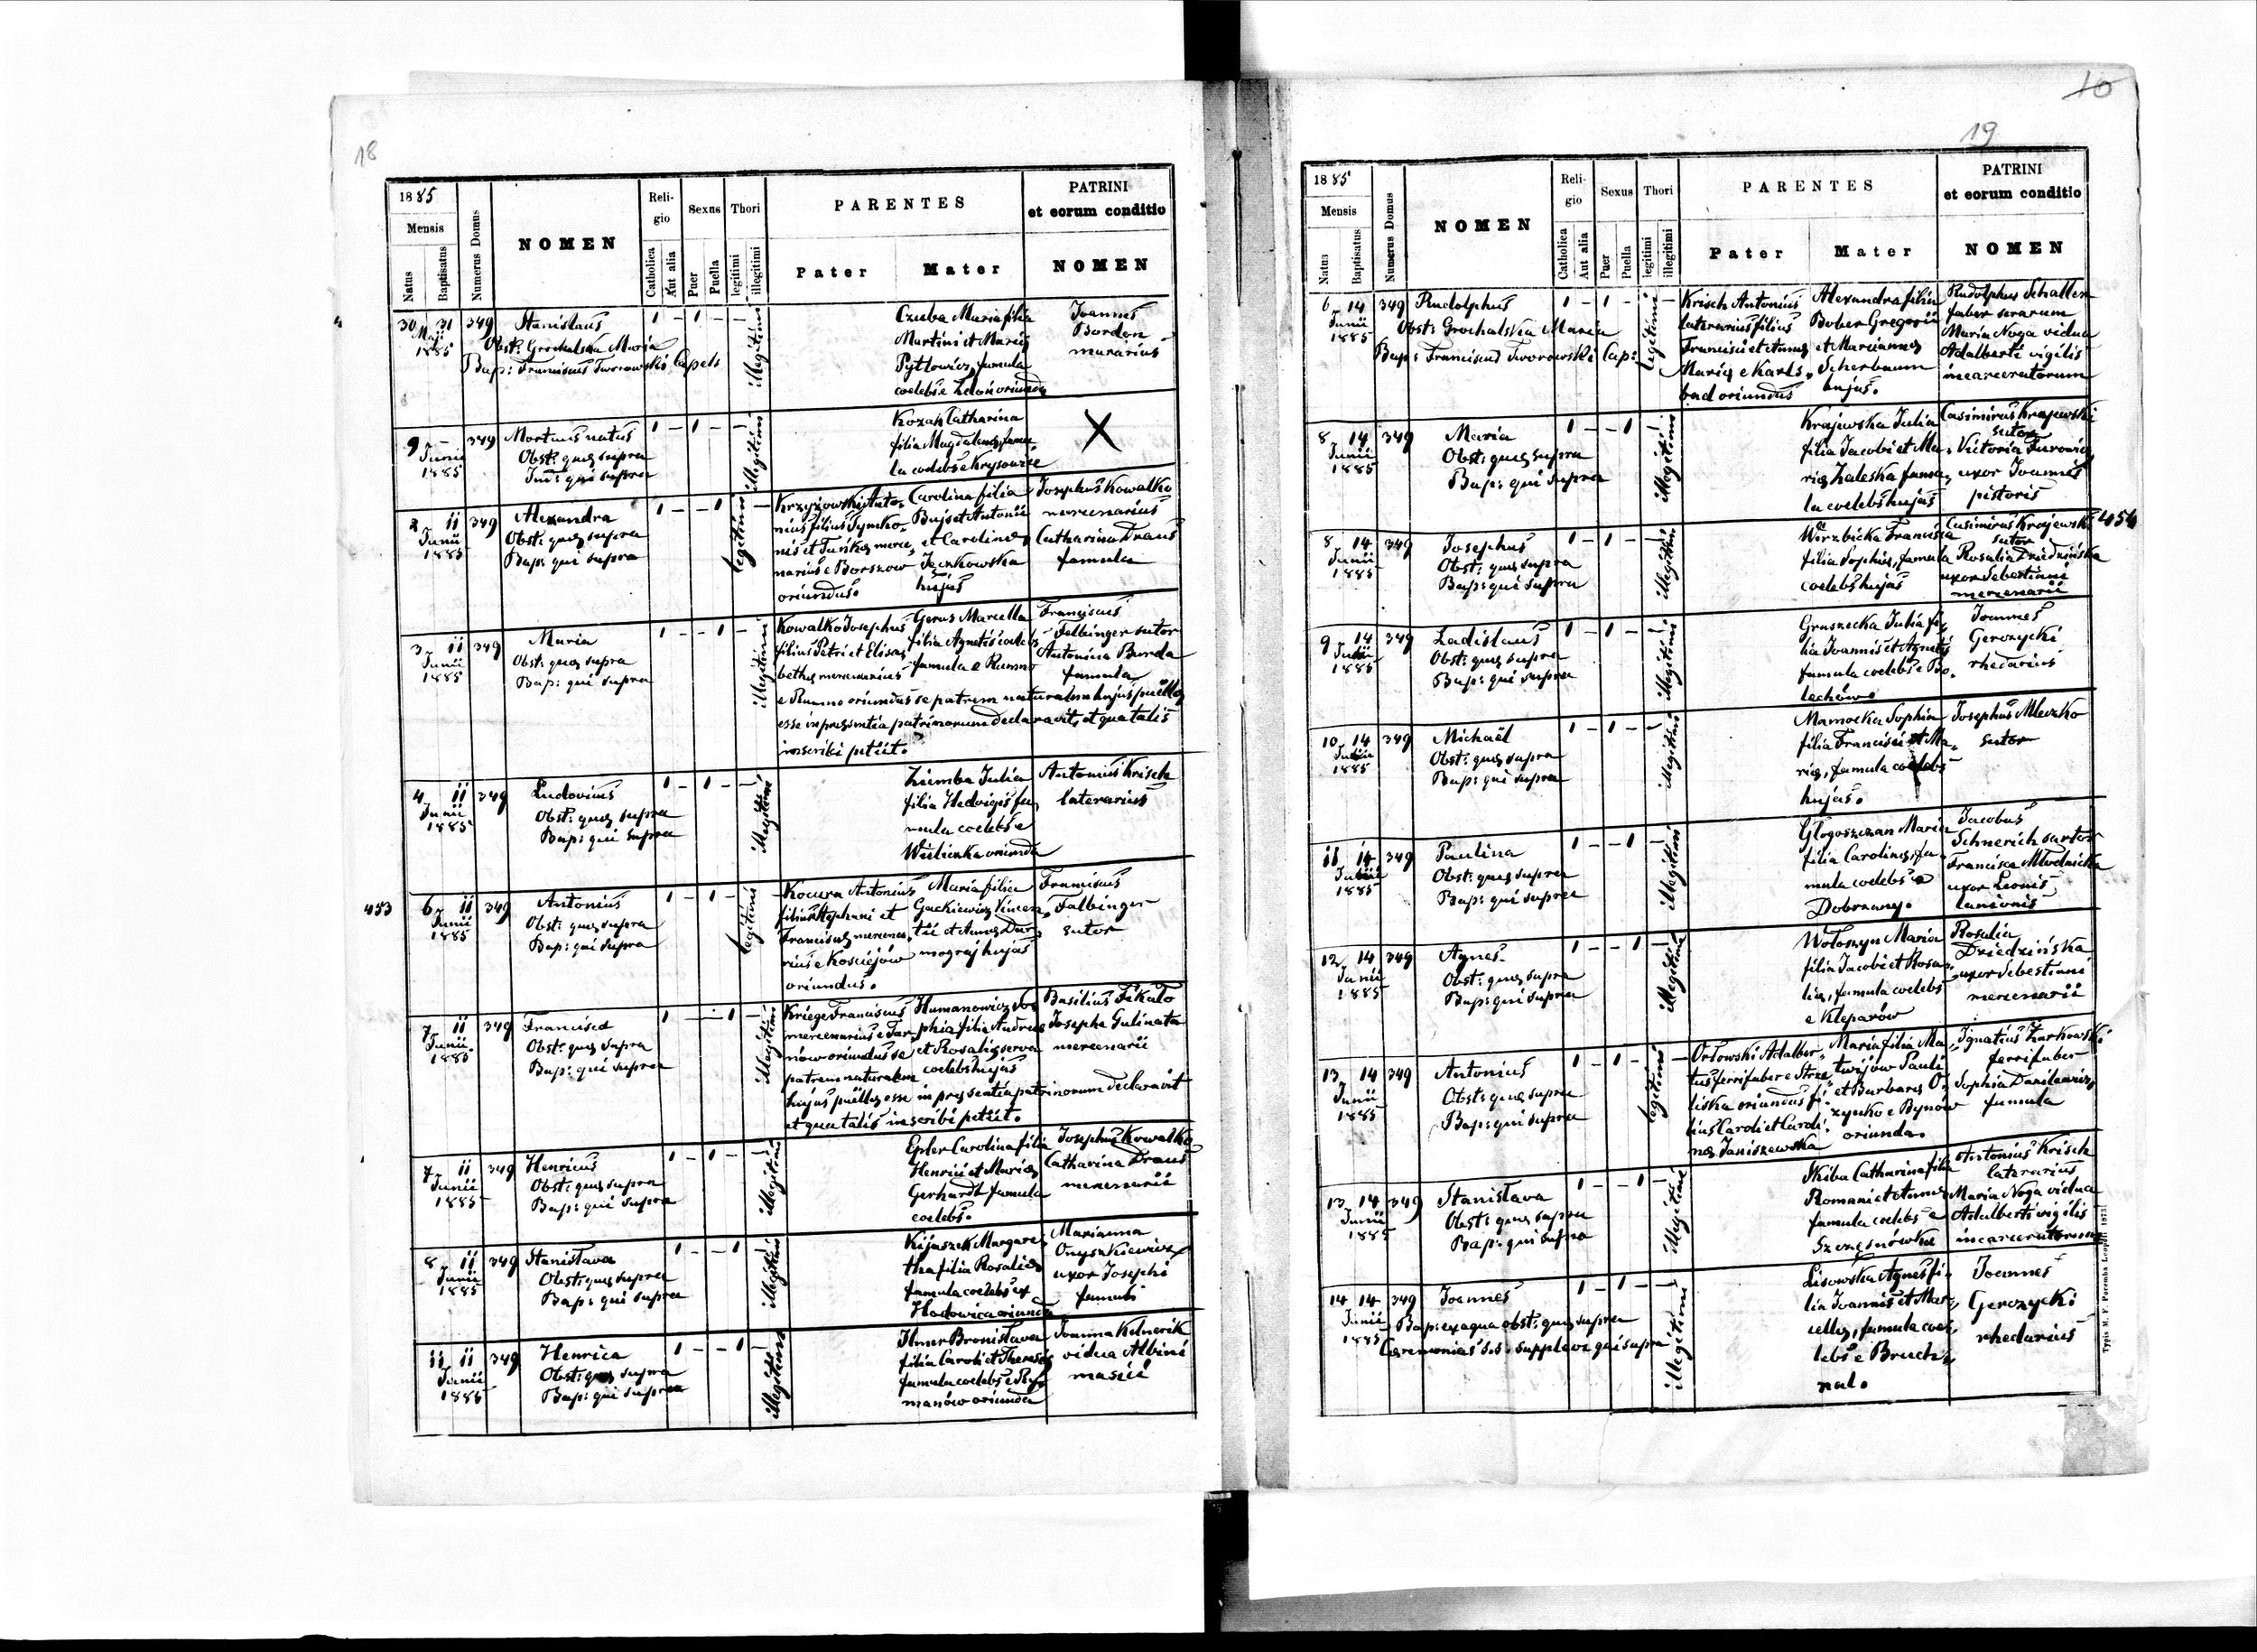 18
1885
Mensis
Natus
Baptisatus
Numerus Domus
NOMEN
Religio
Catholica
Aut alia
Sexus
Puer
Puella
Thori
legitimi
illegitimi
PARENTES
Pater
Mater
PATRINI
et eorum conditio
NOMEN
30 31 349 Stanislaus 1 - 1 - -
Maji
1885
Obst: Grochalska Maria
Bap: Franciscus Tworowski Capels
illegitimi
Czuba Maria filia
Martini et Maria
Pytlowicz, famula
coelebs e oriunda
Joannes
Bordon
murarius
9 - 349 Mortuus natus 1 - 1 -
Junii
1885
Obst: quae supra
qui supra
illegitimi
Kozak Catharina
filia Magdalena, famu
la coelebs e
X
2 11 349 Alexandra 1 - - 1
Junii
1885
Obst: quae supra
Bap: qui supra
legitimi
Krzyżowski Anto-
nius filius Symko-
nis et merce-
narius e Borszow
oriundus.
Carolina filia
Antonii
et Carolina
Jeczkowska
hujus
Josephus Kowalko
mercenarius
Catharina Draus
famula
3 11 349 Maria 1 - - 1 -
Junii
1885
Obst: quae supra
Bap: qui supra
illegitimi
Kowalko Josephus
filius Petri et Elisa-
betha mercenarius
Gerus Marcella
filia Agnetis coelebs
famula e Rumno
Franciscus
Felbinger sutor
Antonina Burda
famula
e Rumno oriundus se patrem naturalem hujus puella
esse in praesentia patrinorum declaravit, et qua talis
inscribi petiit.
4 11 349 Ludovicus 1 - 1 -
Junii
1885
Obst: quae supra
Bap: qui supra
illegitimi
Ziemba Julia
filia Hedvigis fa-
mula coelebs e
Wieliczka oriunda
Antonius Krisch
laterarius
453
6 11 349 Antonius 1 - 1 -
Junii
1885
Obst: quae supra
Bap: qui supra
legitimi
Kocura Antonius
filius Stephani et
Francisca mercena-
rius e Kosciejów
oriundus.
Maria filia
Gackiewicz Vincen-
tii et Anna Dur-
mograj hujas
Franciscus
Falbinger
sutor
7 11 349 Francisca 1 - - 1 -
Junii
1885
Obst: quae supra
Bap: qui supra
illegitimi
Kriege Franciscus
mercenarius e Tar-
nów oriundus se
patrem naturalem
Humanowicz So-
phia filia Andreae
et Rosalia serva
coelebs hujas
Basilius Fikało
Josepha Gulinata
mercenarii
hujus puella esse in praesentia patrinorum declaravit
et qua talis inscribi petiit.
7 11 349 Henricus 1 - 1 -
Junii
1885
Obst: quae supra
Bap: qui supra
illegitimi
Epler Carolina filia
Henrici et Maria
Gerhardt famula
coelebs.
Josephus Kowalko
Catharina Draus
mercenarii
8 11 349 Stanisława 1 - - 1
Junii
1885
Obst: quae supra
Bap: qui supra
illegitimi
Kijaszek Margare-
tha filia Rosalia
famula coelebs ex
Hadowica oriunda
Marianna
Onyszkiewicz
uxor Josephi
famuli
11 11 349 Henrica 1 - - 1
Junii
1885
Obst: quae supra
Bap: qui supra
illegitimi
Bronisława
filia Caroli et Theresia
famula coelebs e
manów oriunda
Joanna Kelnerik
vidua Albini
10
19
1885
Mensis
Natus
Baptisatus
Numerus Domus
NOMEN
Religio
Catholica
Aut alia
Sexus
Puer
Puella
Thori
legitimi
illegitimi
PARENTES
Pater
Mater
PATRINI
et eorum conditio
NOMEN
6 14 349 Rudolphus 1 - 1 -
Junii
1885
Obst: Grochalska Maria
Bap: Franciscus Tworowski Cap:
legitimi
Krisch Antonius
laterarius filius
Francisci et Anna
Maria e Karls-
bad oriundus
Alexandra filia
Bober Gregorii
et Marianna
Scherbaum
hujas.
Rudolphus Schaller
faber serarum
Maria Noga vidua
Adalberti vigilis
incarceratorum
8 14 349 Maria 1 - - 1
Junii
1885
Obst: quae supra
Bap: qui supra
illegitimi
Krajewska Julia
filia Jacobi et Ma-
ria Zaleska famu-
la coelebs hujas
Casimirus Krajewski
sutor
Victoria Turowicz
uxor Joannis
pistoris
454
8 14 349 Josephus 1 - 1 -
Junii
1885
Obst: quae supra
Bap: qui supra
illegitimi
Wierzbicka Francisca
filia Sophia, famula
coelebs hujas
Casimirus Krajewski
sutor
Rosalia Dziedzińska
uxor Sebastiani
mercenarii
9 14 349 Ladislaus 1 - 1 -
Junii
1885
Obst: quae supra
Bap: qui supra
illegitimi
Gruszecka Julia fi-
lia Joannis et Agnetis
famula coelebs e Bo-
lechów
Joannes
Gerczycki
rhedarius
10 14 349 Michaël 1 - 1 -
Junii
1885
Obst: quae supra
Bap: qui supra
illegitimi
Mamocka Sophia
filia Francisci et Ma-
ria, famula coelebs
hujas.
Josephus Mleczko
sutor
11 14 349 Paulina 1 - - 1
Junii
1885
Obst: quae supra
Bap: qui supra
illegitimi
Głogoszczan Maria
filia Carolina, fa-
mula coelebs e
Dobrzany.
Jacobus
Schnerich sartor
Francisca Młodnicka
uxor Leonis
lanionis
12 14 349 Agnes 1 - - 1
Junii
1885
Obst: quae supra
Bap: qui supra
illegitimi
Wołoszyn Maria
filia Jacobi et Rosa-
lia, famula coelebs
e Kleparów
Rosalia
Dziedzińska
uxor Sebastiani
mercenarii
13 14 349 Antonius 1 - 1 -
Junii
1885
Obst: quae supra
Bap: qui supra
legitimi
Orłowski Adalber-
tus ferrifaber e Strze-
liska oriundus fi-
lius Caroli et Caroli-
na Janiszewska
Maria filia Ma-
twijów Pauli
et Barbara O-
zynko e Bynów
oriunda.
Ignatius Żarkowski
ferrifaber
Sophia Danilewicz
famula
13 14 349 Stanisława 1 - - 1 -
Junii
1885
Obst: quae supra
Bap: qui supra
illegitimi
Skiba Catharina filia
Romani et Anna
famula coelebs e
Szczęsnówka
Antonius Krisch
laterarius
Maria Noga vidua
Adalberti vigilis
incarceratorum
14 14 349 Joannes 1 - 1 -
Junii
1885
Bap: ex aqua obst: quae supra
Ceremonias s.s. supplevi qui supra
illegitimi
Lisowska Agnes fi-
lia Joannis et Mar-
cella, famula coe-
lebs e Bruch-
nal.
Joannes
Gerczycki
rhedarius
Typis M. F. Poremba Leopoli 1873